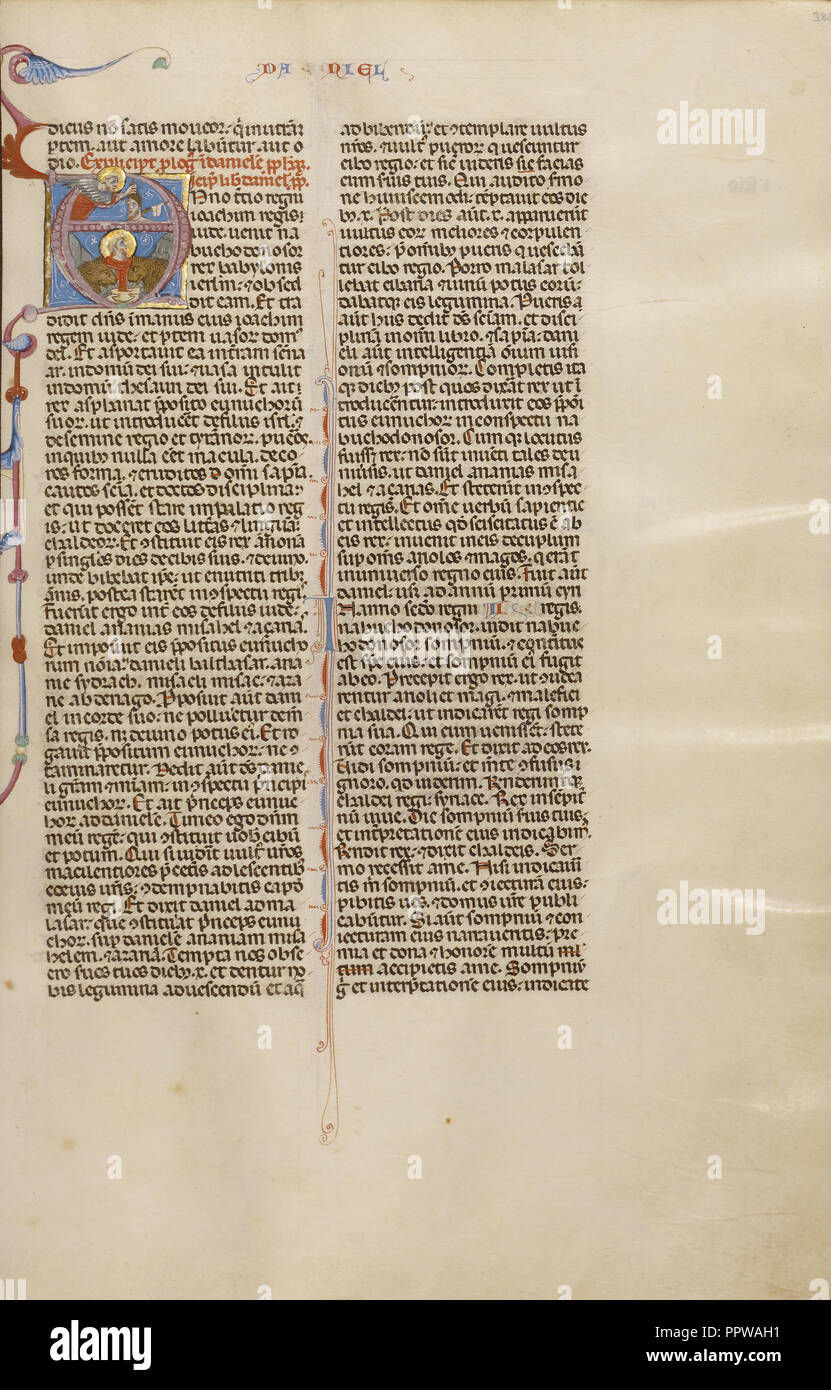 DANIEL
dicus no satis moveor: qui mutari
ptem. aut amore labuntur aut o
dio. Explicit plog' i daniele pph'.
icip' lib' daniel' pp'.
Anno tcio regni
ioachim regis
iude. uenit na
buchodonosor
rex babylonis
ierlm: ⁊ obsed
dit eam. Et tra
didit dns i manus eius ioachim
regem iude: et ptem uasor dom'
dei. Et asportauit ea in tram senna
ar. in domu dei sui: ⁊ uasa intulit
in domu thesauri dei sui. Et ait
rex asphanat pposito eunuchoru
suor: ut introduceret de filiis isrl'. ⁊
de semine regio et tyranor. pueros.
in quib; nulla eet macula. deco
res forma. ⁊ eruditos omni sapia.
cautos scia. et doctos disciplina:
et qui possent stare in palatio reg
is: ut doceret eos litteras ⁊ lingua
chaldeor. Et ꝯstituit eis rex annona
p singlos dies de cibis suis. ⁊ de uino.
unde bibebat ipe: ut enutriti trib;
annis. postea starent in ꝯspectu regi.
Fuerut ergo int' eos de filiis iude:
daniel ananias misahel ⁊ azaria.
Et imposuit eis ppositus eunucho
rum noia: danieli balthasar. ana
nie sydrach. misaeli misac. ⁊ aza
rie abdenago. Pposuit aut dani
el in corde suo: ne pollueretur de m
sa regis. n; de uino potus ei. Et ro
gauit ppositum eunuchor: ne ꝯ
taminaretur. Dedit aut ds danie
li gram ⁊ miam: in ꝯspectu pncipi
eunuchor. Et ait pnceps eunuc
hor ad daniele. Timeo ego dnm
meu rege: qui ꝯstituit uob' cibu
et potum. Qui si uidit uult' uros
macilentiores p ceteris adlescentib;
coeuis uris: ꝯdempnabitis capd
meu regi. Et dixit daniel ad ma
lasar: que ꝯstituat pnceps eunu
chor. sup daniele ananiam misa
helem. ⁊ azaria. Tempta nos obse
cro suos tuos dieb;.x. et dentur no
bis legumina ad uescendu et aq
ad bibendu: et ꝯtemplare uultus
nros. ⁊ uult' pueror q uescuntur
cibo regio: et sic uideris sic facias
cum suis tuis. Qui audito smo
ne huiuscemodi: teptauit eos die
b;.x. Post dies aut .x. apparuerut
uultus eor meliores ⁊ corpulen
tiores: p omib; pueris q uesceba
tur cibo regio. Porro malasar tol
lebat cibaria ⁊ uinu potus eoru:
dabatq; eis legumina. Pueris a
aut hiis dedit ds sciam. et disci
plina in omi libro. ⁊ sapia: dani
eli aut intelligentia omium uisi
onu ⁊ sompnior. Completis ita
q; dieb; post quos dixat rex ut i
troducerentur: introduxit eos ppoi
tus eunuchor in conspectu na
buchodonosor. Cum q; locutus
fuiss; rex: no sut inueti tales de u
niuersis. ut daniel ananias misa
hel ⁊ azarias. Et steterut in ꝯspec
tu regis. Et ome uerbu sapientie
et intellectus qd sciscitatus e ab
eis rex: inuenit in eis decuplum
sup oms ariolos ⁊ magos. q erat
in uniuerso regno eius. Fuit aut
daniel: usq; ad annu primu cyri
In anno scdo regni regis.
nabuchodonosor. uidit nabuc
hodonosor sompniu. ⁊ conterritus
est sps eius: et sompniu ei fugit
ab eo. Precepit ergo rex: ut ꝯuoca
rentur arioli et magi. ⁊ malefici
et chaldei: ut indicarent regi somp
nia sua. Qui cum uenissent: stete
rut coram rege. Et dixit ad eos rex.
Uidi sompniu: et mte ꝯfusus i
gnoro. qd uiderim. Rnderunt q;
chaldei regi: syriace. Rex in sepit'
nu uiue. Dic sompniu suis tuis:
et int'pretatione eius indicabim'.
Rendit rex: ⁊ dixit chaldeis. Ser
mo recessit a me. Nisi indicau'i
tis m sompniu. et ꝯiectura eius:
pibitis uos. ⁊ domus ure publi
cabutur. Si aut sompniu ⁊ con
iecturam eius narraueritis: pre
mia et dona ⁊ honore multu mi
tum accipietis a me. Sompniu
g et interptatione eius: indicate
alamy
Image ID: PPWAH1
www.alamy.com